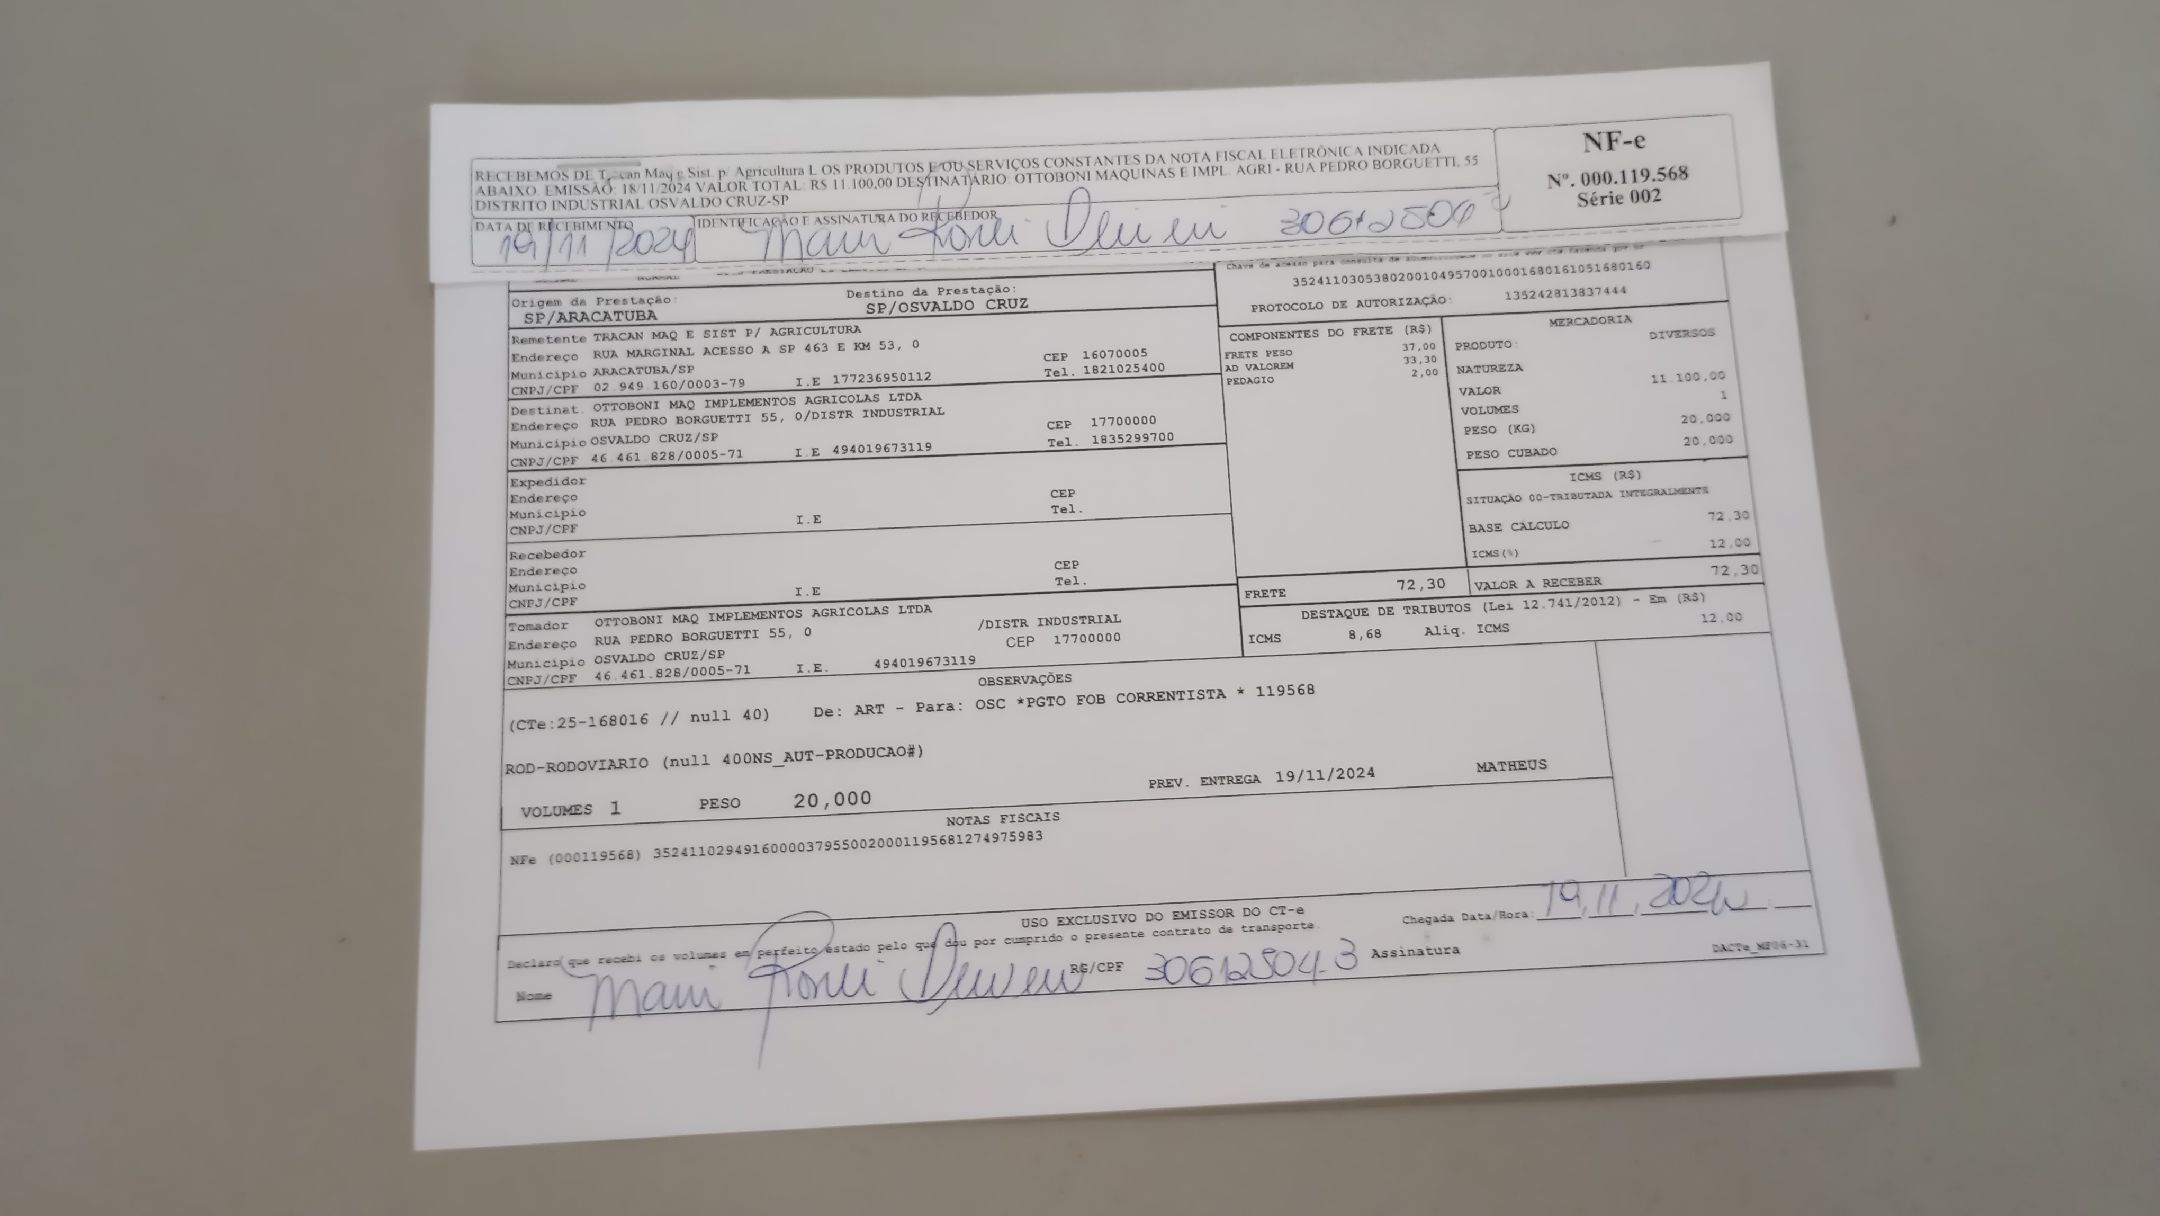 RECEBEMOS DE Tracan Maq e Sist. p/ Agricultura L OS PRODUTOS E/OU SERVIÇOS CONSTANTES DA NOTA FISCAL ELETRÔNICA INDICADA
ABAIXO. EMISSÃO: 18/11/2024 VALOR TOTAL: R$ 11.100,00 DESTINATÁRIO: OTTOBONI MAQUINAS E IMPL. AGRI - RUA PEDRO BORGUETTI, 55
DISTRITO INDUSTRIAL OSVALDO CRUZ-SP
NF-e
Nº. 000.119.568
Série 002
DATA DE RECEBIMENTO
IDENTIFICAÇÃO E ASSINATURA DO RECEBEDOR
19/11/2024
NORMAL
Chave de acesso para consulta de
35241103053802001049570010001680161051680160
PROTOCOLO DE AUTORIZAÇÃO: 135242813837444
Origem da Prestação:
SP/ARACATUBA
Destino da Prestação:
SP/OSVALDO CRUZ
Remetente TRACAN MAQ E SIST P/ AGRICULTURA
Endereço RUA MARGINAL ACESSO A SP 463 E KM 53, 0
Municipio ARACATUBA/SP CEP 16070005
CNPJ/CPF 02.949.160/0003-79 I.E 177236950112 Tel. 1821025400
Destinat. OTTOBONI MAQ IMPLEMENTOS AGRICOLAS LTDA
Endereço RUA PEDRO BORGUETTI 55, 0/DISTR INDUSTRIAL
Municipio OSVALDO CRUZ/SP CEP 17700000
CNPJ/CPF 46.461.828/0005-71 I.E 494019673119 Tel. 1835299700
Expedidor
Endereço
Municipio CEP
CNPJ/CPF I.E Tel.
Recebedor
Endereço
Municipio CEP
CNPJ/CPF I.E Tel.
Tomador OTTOBONI MAQ IMPLEMENTOS AGRICOLAS LTDA
Endereço RUA PEDRO BORGUETTI 55, 0 /DISTR INDUSTRIAL
Municipio OSVALDO CRUZ/SP CEP 17700000
CNPJ/CPF 46.461.828/0005-71 I.E. 494019673119
COMPONENTES DO FRETE (R$)
FRETE PESO 37,00
AD VALOREM 33,30
PEDAGIO 2,00
MERCADORIA
PRODUTO: DIVERSOS
NATUREZA
VALOR 11.100,00
VOLUMES 1
PESO (KG) 20,000
PESO CUBADO 20,000
ICMS (R$)
SITUAÇÃO 00-TRIBUTADA INTEGRALMENTE
BASE CÁLCULO 72,30
ICMS(%) 12,00
FRETE 72,30 VALOR A RECEBER 72,30
DESTAQUE DE TRIBUTOS (Lei 12.741/2012) - Em (R$)
ICMS 8,68 Aliq. ICMS 12,00
OBSERVAÇÕES
(CTe:25-168016 // null 40) De: ART - Para: OSC *PGTO FOB CORRENTISTA * 119568
ROD-RODOVIARIO (null 400NS_AUT-PRODUCAO#)
VOLUMES 1 PESO 20,000 PREV. ENTREGA 19/11/2024 MATHEUS
NOTAS FISCAIS
NFe (000119568) 35241102949160000379550020001195681274975983
USO EXCLUSIVO DO EMISSOR DO CT-e
Declaro que recebi os volumes em perfeito estado pelo que dou por cumprido o presente contrato de transporte.
Chegada Data/Hora: 19/11/2024
Nome RG/CPF 306125043 Assinatura
DACTe_MP06-31